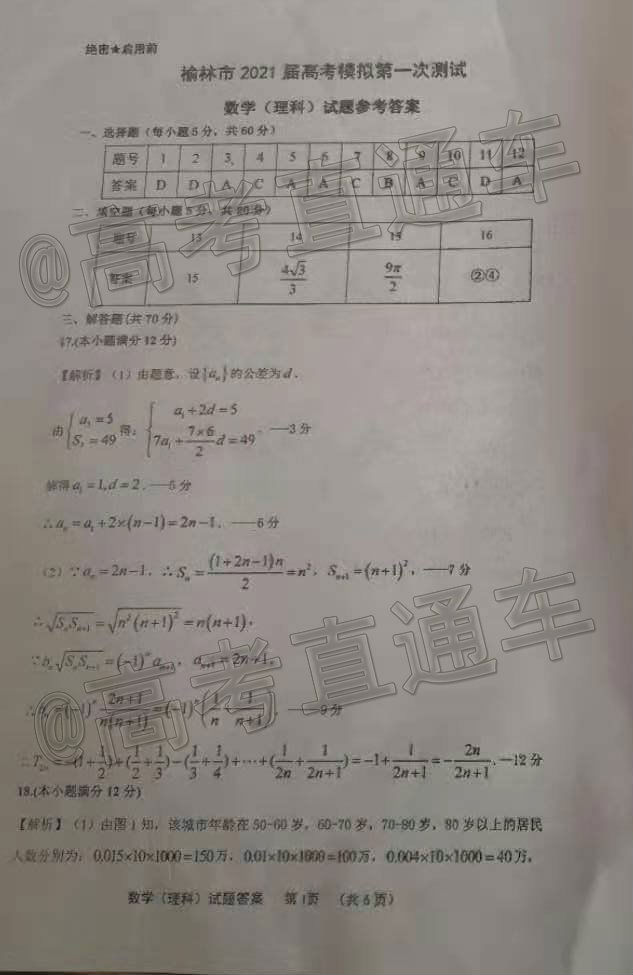 绝密★启用前
榆林市2021届高考模拟第一次测试
数学（理科）试题参考答案
一、选择题（每小题5分，共60分）
题号 1 2 3 4 5 6 7 8 9 10 11 12
答案 D D A C A A C B A C D A
二、填空题（每小题5分，共20分）
题号 13 14 15 16
答案 15 4√3/3 9π/2 ②④
三、解答题(共70分)
17.(本小题满分12分)
【解析】（1）由题意，设{aₙ}的公差为d．
由{a₃=5, S₇=49 得：{a₁+2d=5, 7a₁+(7×6/2)d=49．—3分
解得a₁=1,d=2．—5分
∴aₙ=a₁+2×(n−1)=2n−1．——6分
（2）∵aₙ=2n−1．∴Sₙ=(1+2n−1)n/2=n²，Sₙ₊₁=(n+1)²，——7分
∴√(SₙSₙ₊₁)=√(n²(n+1)²)=n(n+1)，
∵bₙ√(SₙSₙ₊₁)=(−1)ⁿaₙ₊₁，aₙ₊₁=2n+1，
∴bₙ=(−1)ⁿ(2n+1)/(n(n+1))=(−1)ⁿ(1/n+1/(n+1))，——9分
∴T₂ₙ=−(1+1/2)+(1/2+1/3)−(1/3+1/4)+⋯+(1/2n+1/(2n+1))=−1+1/(2n+1)=−2n/(2n+1)．—12分
18.(本小题满分12分)
【解析】（1）由图1知，该城市年龄在50-60岁，60-70岁，70-80岁，80岁以上的居民
人数分别为：0.015×10×1000=150万，0.01×10×1000=100万，0.004×10×1000=40万，
数学（理科）试题答案 第1页 （共6页）
@高考直通车
@高考直通车